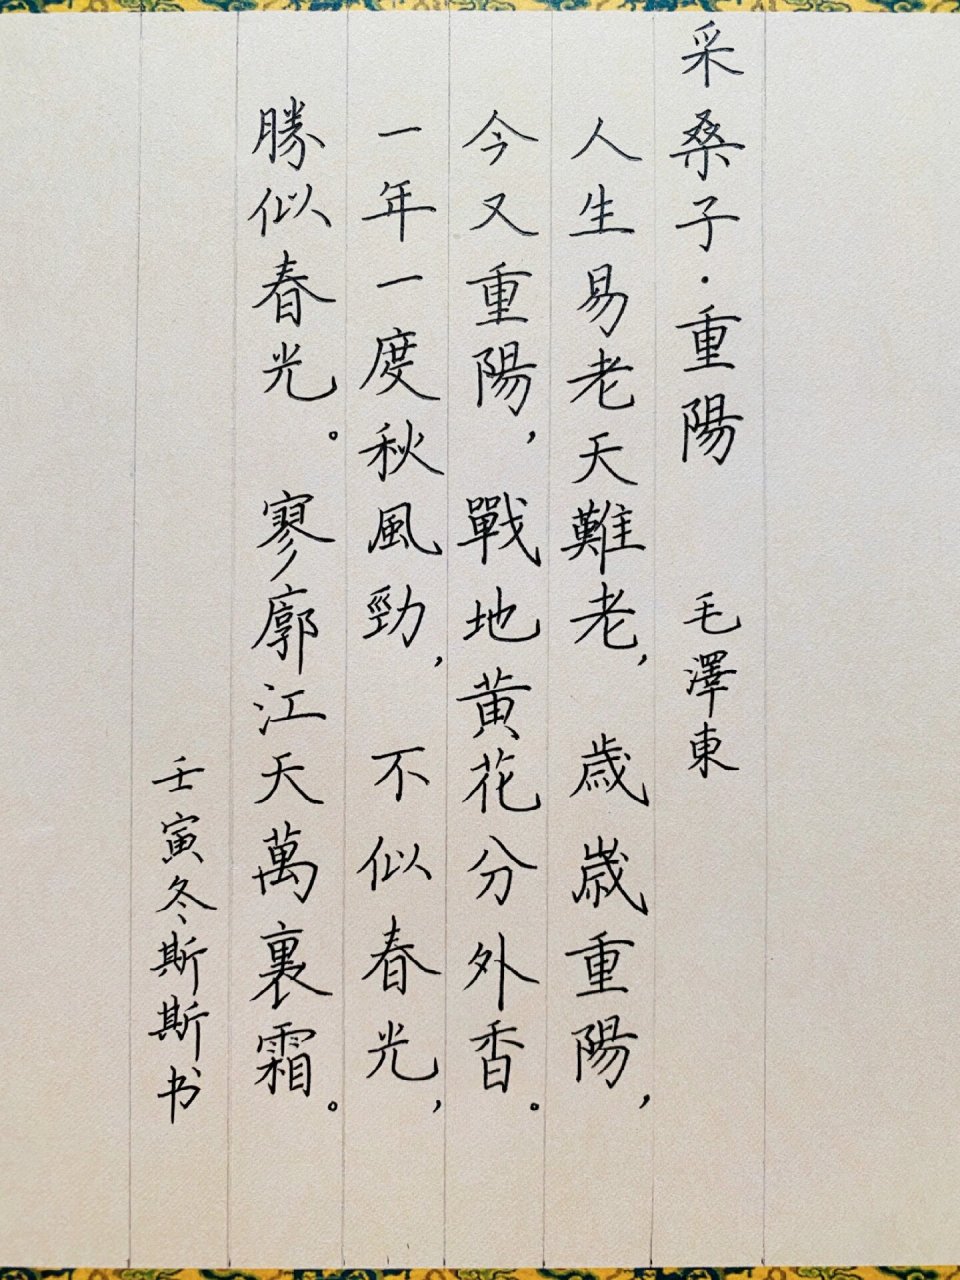 采桑子·重陽 毛澤東
人生易老天難老，歲歲重陽，
今又重陽，戰地黄花分外香。
一年一度秋風勁，不似春光，
勝似春光。寥廓江天萬裏霜。
壬寅冬斯斯书